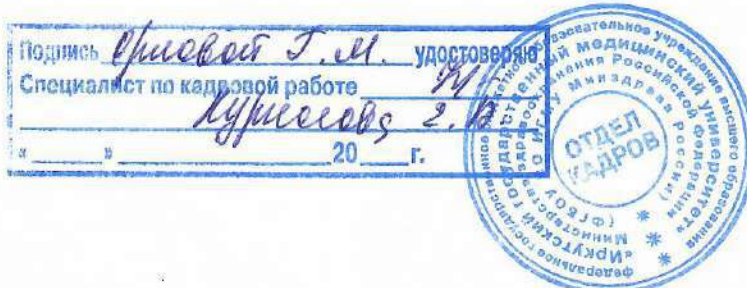 Подпись Орловой Г. М. удостоверяю
Специалист по кадровой работе
« » 20 г.
федеральное государственное бюджетное образовательное учреждение высшего образования
«Иркутский государственный медицинский университет»
Министерства здравоохранения Российской Федерации
(ФГБОУ ВО ИГМУ Минздрава России)
ОТДЕЛ
КАДРОВ